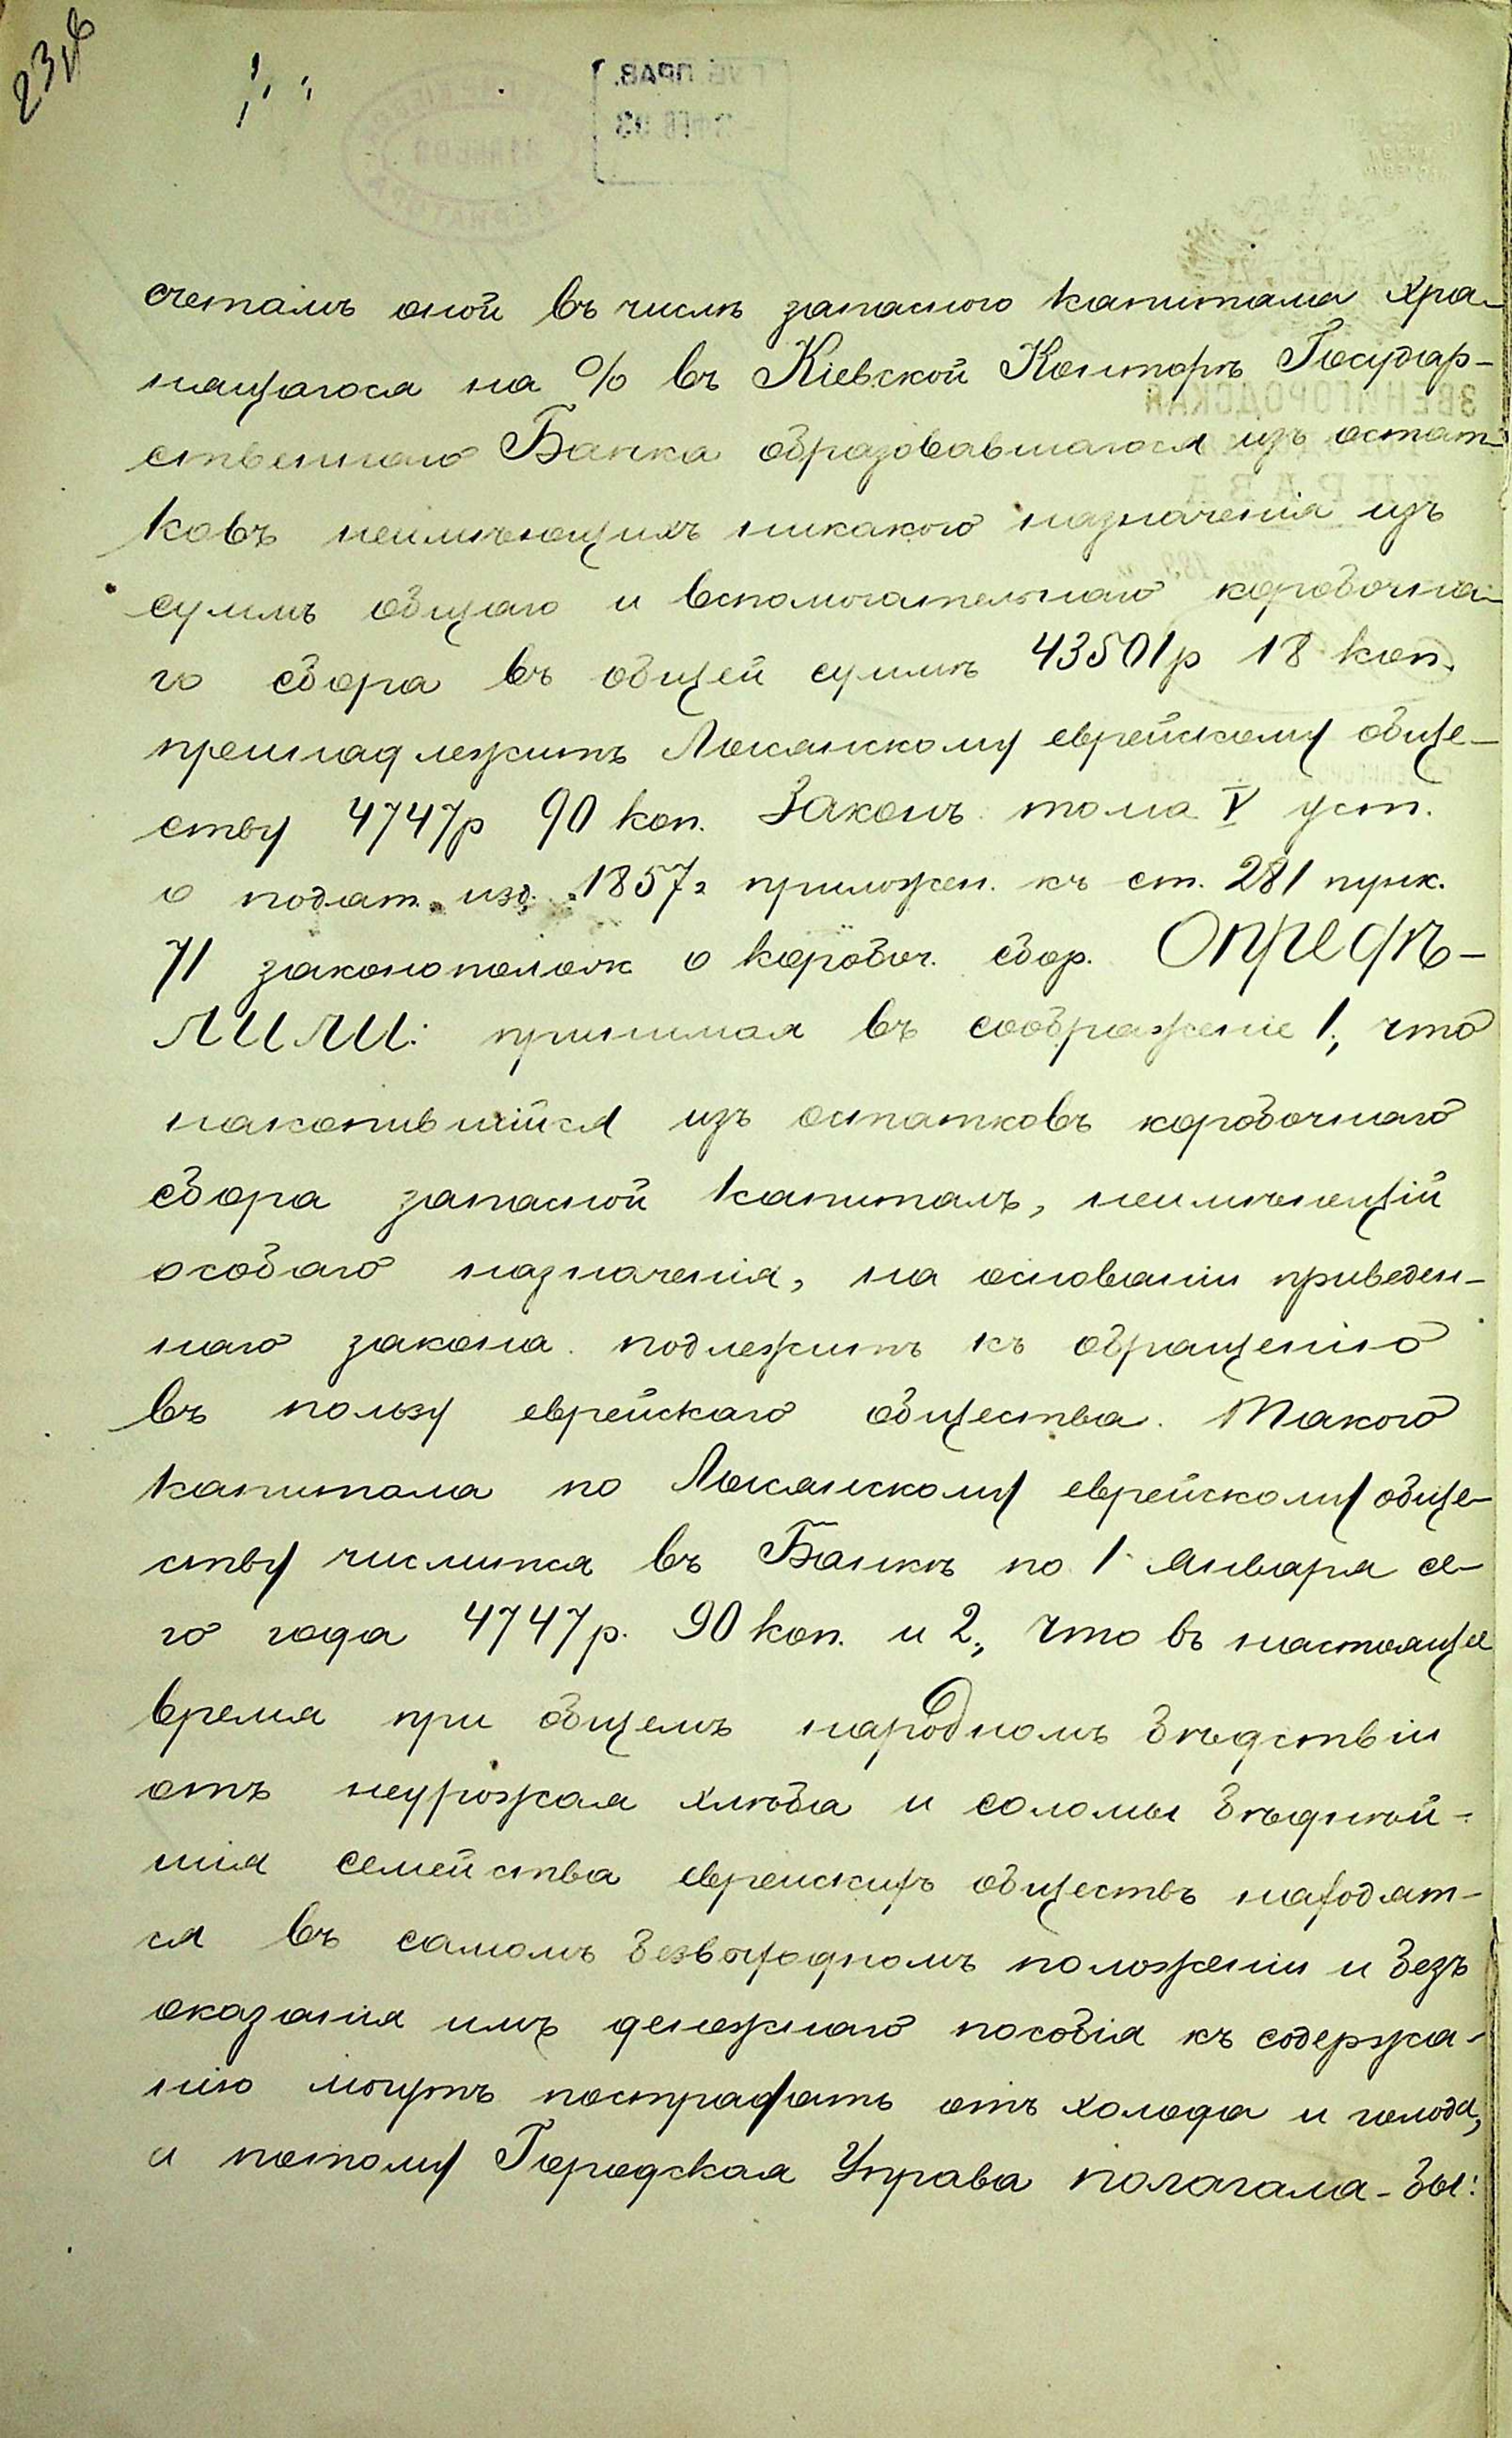 23 об
счетамъ оной въ числѣ запасного капитала хра-
нящагося на % въ Кіевской Конторѣ Государ-
ственнаго Банка образовавшагося изъ остат-
ковъ неимѣющихъ никакого назначенія изъ
суммъ общаго и вспомогательнаго коробочна-
го сбора въ общей суммѣ 43501р 18 коп.
пренадлежитъ Лысянскому еврейскому обще-
ству 4747р 90 коп. Законъ тома V уст.
о подат. изд. 1857г приложен. къ ст. 281 пунк.
71 законополож о коробоч. сбор. Опредѣ-
лили: принимая въ соображеніе 1, что
накопившійся изъ остатковъ коробочнаго
сбора запасной капиталъ, неимѣющій
особаго назначенія, на основаніи приведен-
наго закона подлежитъ къ обращенію
въ пользу еврейскаго общества. Такого
капитала по Лысянскому еврейскому обще-
ству числится въ Банкѣ по 1 января се-
го года 4747р. 90 коп. и 2, что въ настоящее
время при общемъ народномъ бѣдствіи
отъ неурожая хлѣба и соломы бѣднѣй-
шія семейства еврейскихъ обществъ находят-
ся въ самомъ безвыходномъ положеніи и безъ
оказанія имъ денежнаго пособія къ содержа-
нію могутъ пострадать отъ холода и голода,
а потому Городская Управа полагала-бы: